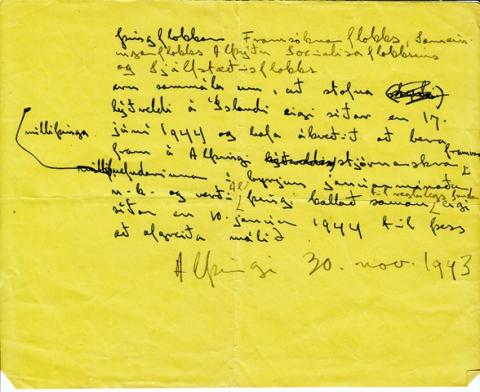 Þingflokkar Framsóknarflokks, Samein-
ingarflokks Alþýðu Socialistaflokksins
og Sjálfstæðisflokks
eru sammála um, at stofna
lýðveldi á Íslandi eigi síðar en 17.
júní 1944 og hafa ákveðit at bera
fram á Alþingi stjórnarskrár
milliþinga nefndarinnar í byrjun janúar mánaðar
n.k. og verði Alþingi kallat saman eigi
síðar en 10. janúar 1944 til þess
at afgreiða málið
Alþingi 30. nov. 1943